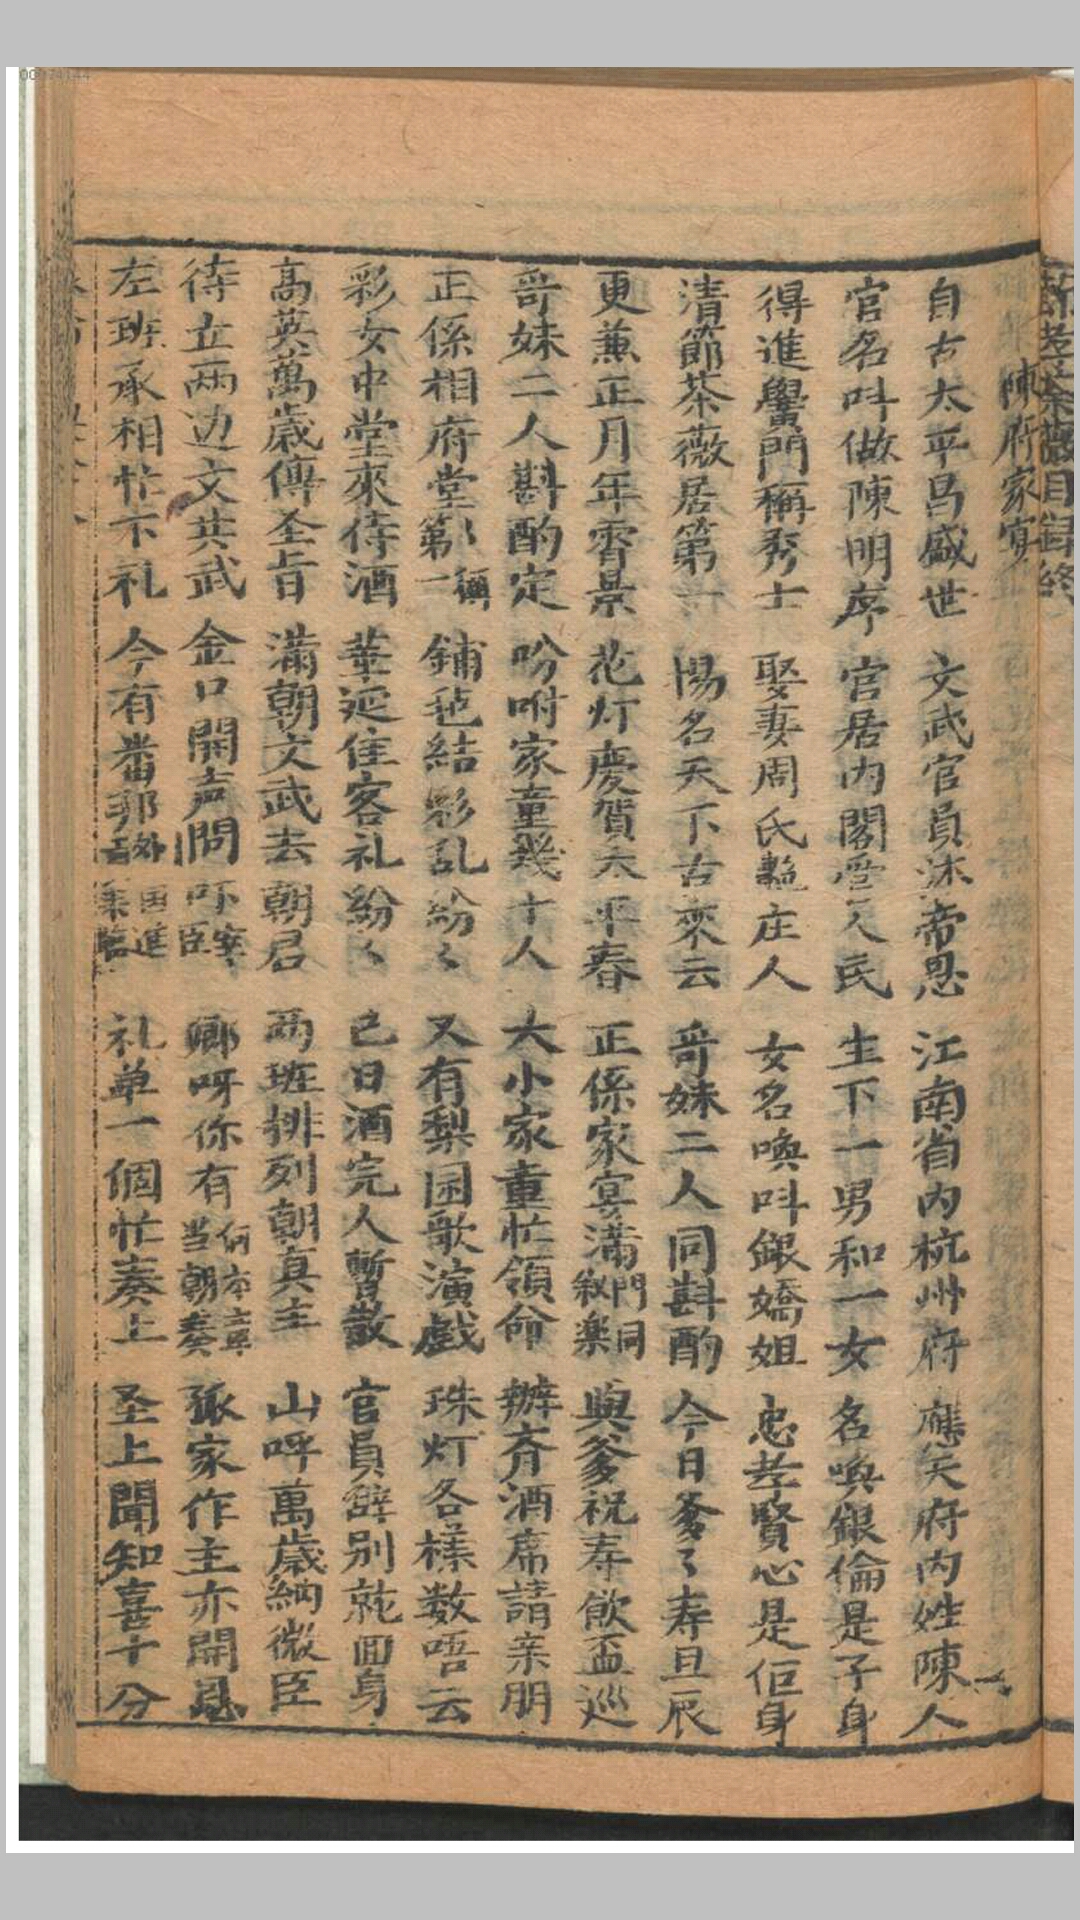 新荼薇目錄終
陳府家宴
自古太平昌盛世 文武官員沐帝恩 江南省內杭州府 應天府內姓陳人
官名叫做陳明序 官居內閣管人民 生下一男和一女 名喚銀倫是子身
得進黌門稱秀士 娶妻周氏艷庄人 女名喚叫銀嬌姐 忠孝賢心是佢身
清節茶薇居第一 揚名天下古來云 哥妹二人同斟酌 今日爹々寿旦辰
更兼正月年霄景 花灯慶賀太平春 正係家宴滿門同叙樂 與爹祝寿飲盃巡
哥妹二人斟酌定 吩咐家童幾十人 大小家童忙領命 辦齐酒席請亲朋
正係相府堂々第一 鋪毡結彩乱紛々 又有梨园歌演戲 珠灯各樣数唔云
彩女中堂來侍酒 華延佳客礼紛々 已日酒完人暫散 官員辞別就回身
高英萬歲傳圣旨 滿朝文武去朝君 兩班排列朝真主 山呼萬歲納微臣
待立兩边文共武 金口開声問吓寡臣 卿呀你有何本章当朝奏 孤家作主亦開恩
左班承相忙下礼 今有番邦外国進 礼单一個忙奏上 圣上聞知喜十分